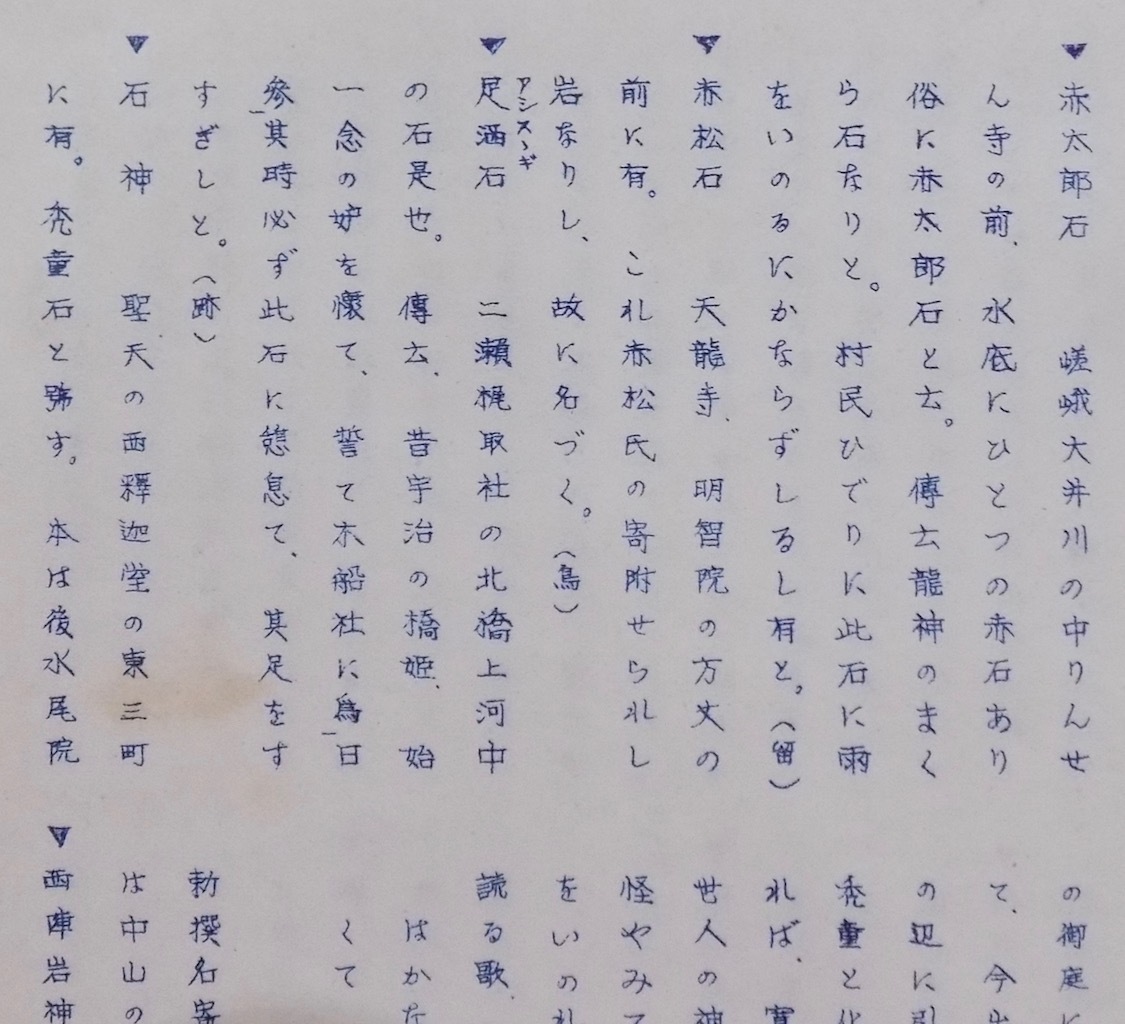 ▼赤太郎石　嵯峨大井川の中りんせ
ん寺の前、水底にひとつの赤石あり
俗に赤太郎石と云。傳云龍神のまく
ら石なりと。村民ひでりに此石に雨
をいのるにかならずしるし有と。（留）
▼赤松石　天龍寺、明智院の方丈の
前に有。これ赤松氏の寄附せられし
岩なりし、故に名づく。（鳥）
アシスヽギ
▼足洒石　二瀬梶取社の北橋上河中
の石是也。傳云、昔宇治の橋姫、始
一念の妒を懐て、誓て木船社に為日
參其時必ず此石に憩息て、其足をす
すぎしと。（跡）
▼石神　聖天の西釋迦堂の東三町
に有。禿童石と號す。本は後水尾院
の御庭に
て、今出
の辺に引
禿童と化
れば、寳
世人の神
怪やみて
をいのれ
読る歌、
はかな
くて
勅撰名寄
は中山の
▼西陣岩神